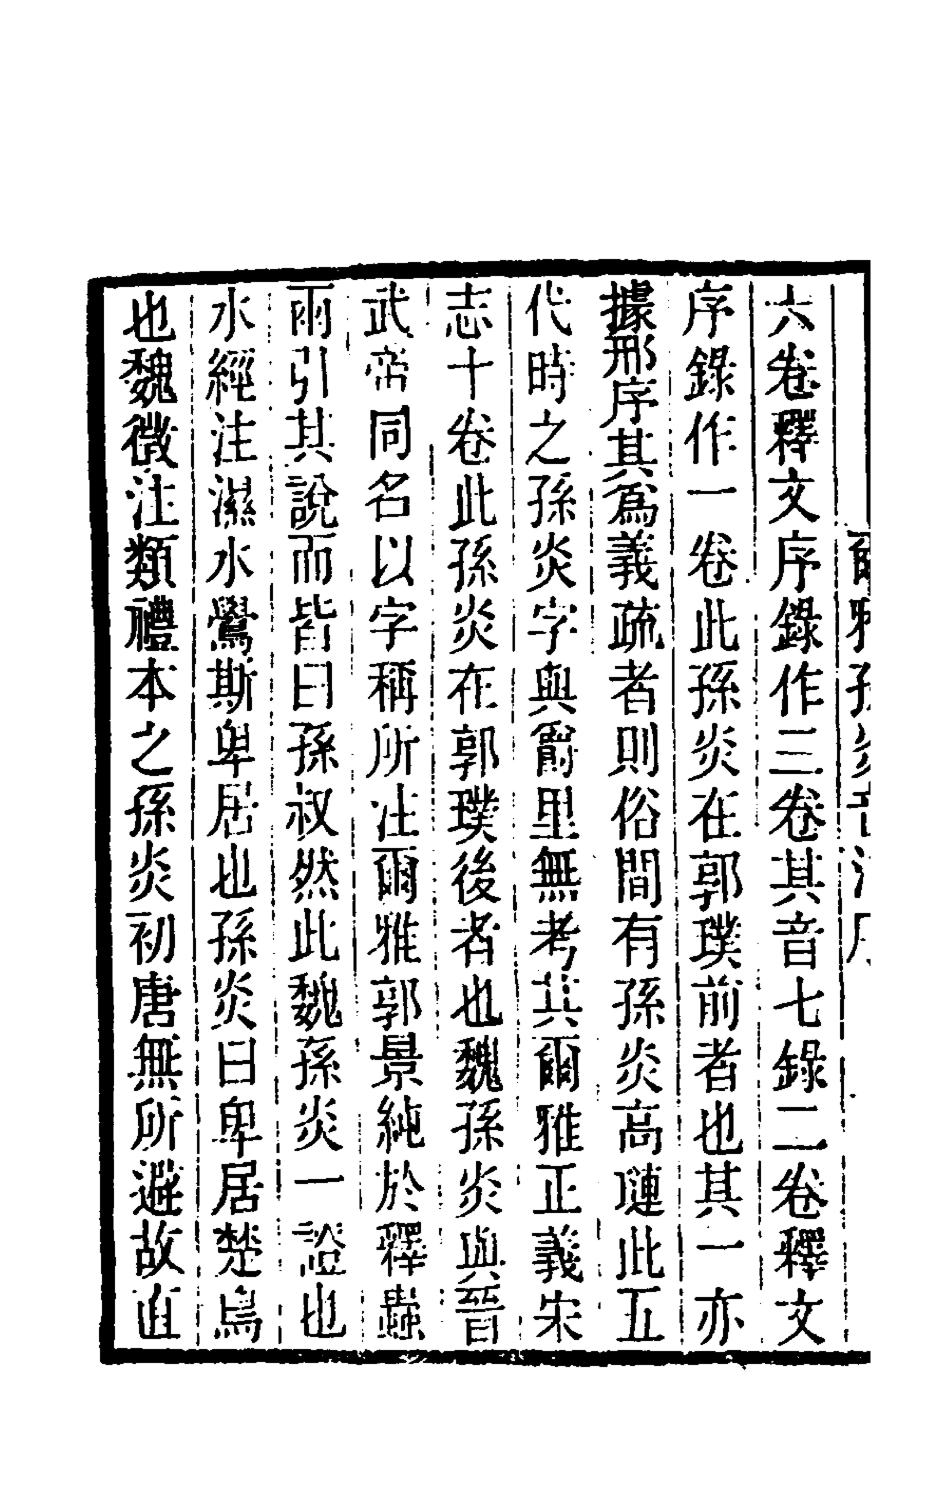 爾雅孫炎音注序
六卷釋文序錄作三卷其音七錄二卷釋文
序錄作一卷此孫炎在郭璞前者也其一亦
據邢序其爲義疏者則俗間有孫炎高璉此五
代時之孫炎字與爵里無考其爾雅正義宋
志十卷此孫炎在郭璞後者也魏孫炎與晉
武帝同名以字稱所注爾雅郭景純於釋蟲
兩引其說而皆曰孫叔然此魏孫炎一證也
水經注濕水鸒斯卑居也孫炎曰卑居楚烏
也魏徵注類禮本之孫炎初唐無所避故直